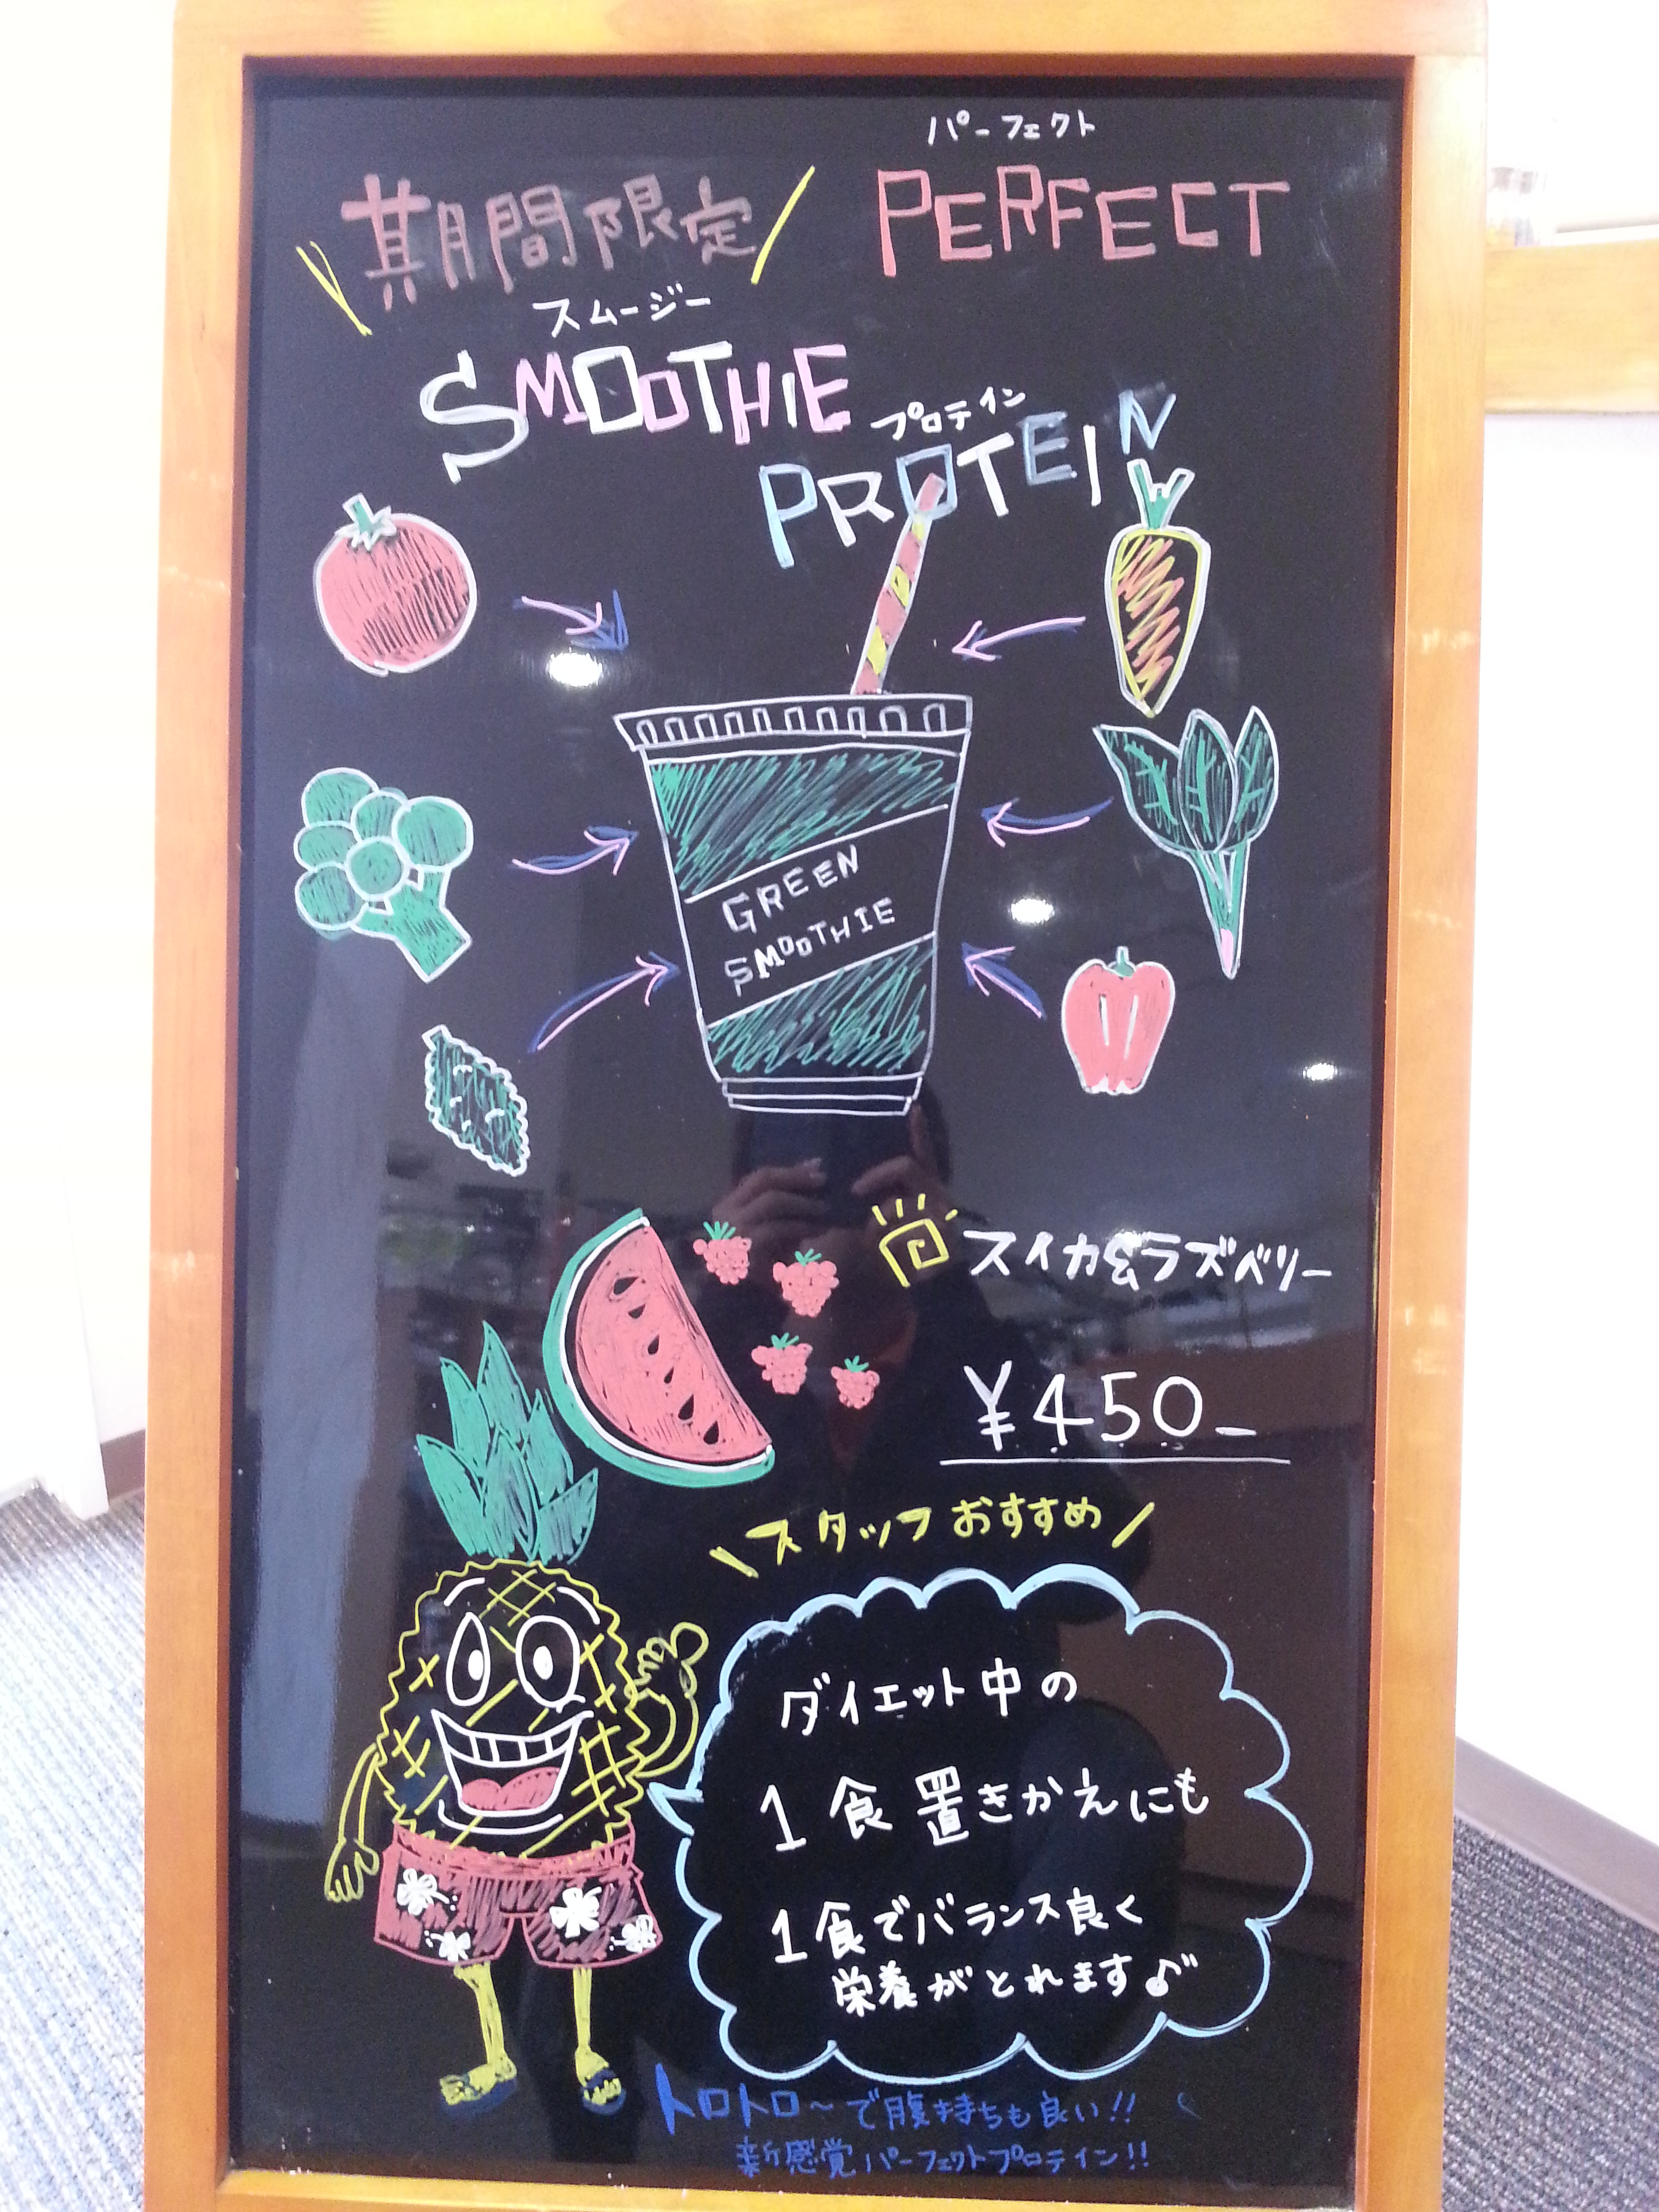 パーフェクト
期間限定 PERFECT
スムージー
SMOOTHIE
プロテイン
PROTEIN
GREEN
SMOOTHIE
スイカ&ラズベリー
¥450-
スタッフおすすめ
ダイエット中の
1食置きかえにも
1食でバランス良く
栄養がとれます♪
トロトロ~で腹持ちも良い!!
新感覚パーフェクトプロテイン!!